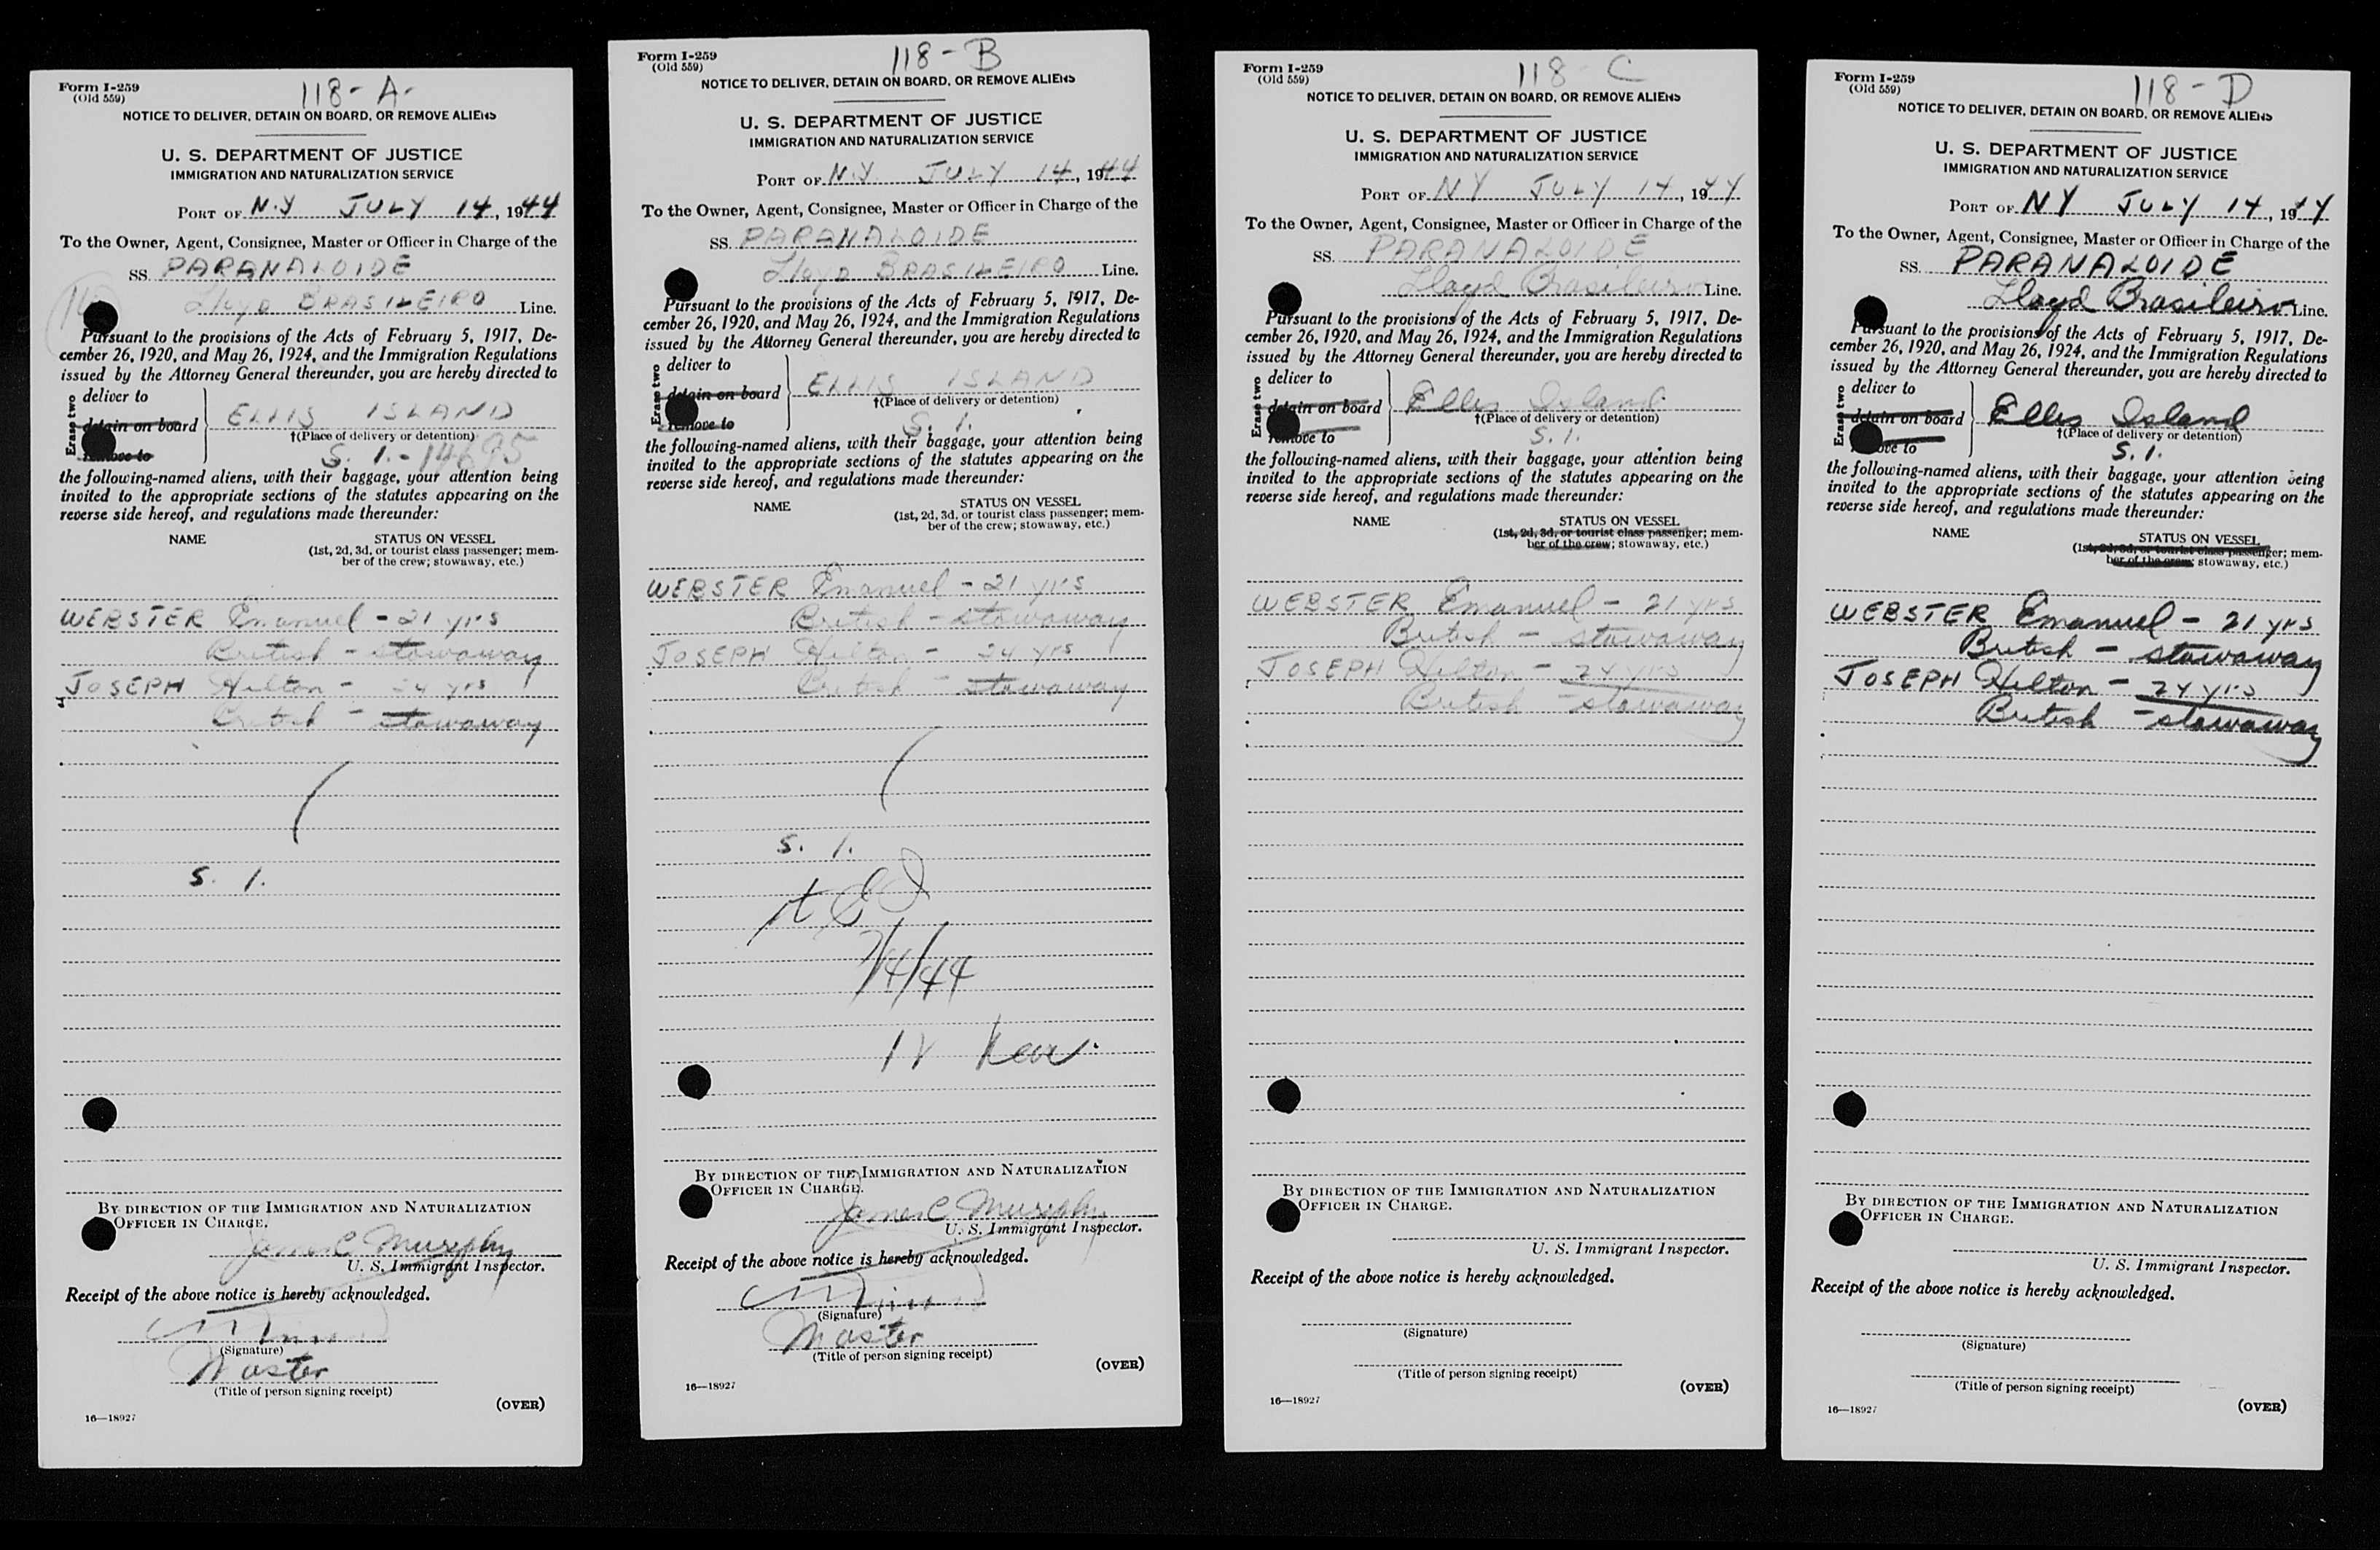 Form I-259
(Old 559)
118-A-
NOTICE TO DELIVER, DETAIN ON BOARD, OR REMOVE ALIENS
U. S. DEPARTMENT OF JUSTICE
IMMIGRATION AND NATURALIZATION SERVICE
PORT OF N.Y JULY 14, 1944
To the Owner, Agent, Consignee, Master or Officer in Charge of the
SS. PARANALOIDE
Lloyd BRASILEIRO Line.
Pursuant to the provisions of the Acts of February 5, 1917, De-
cember 26, 1920, and May 26, 1924, and the Immigration Regulations
issued by the Attorney General thereunder, you are hereby directed to
Erase two
deliver to
detain on board
remove to
ELLIS ISLAND
†(Place of delivery or detention)
S. 1. - 14695
the following-named aliens, with their baggage, your attention being
invited to the appropriate sections of the statutes appearing on the
reverse side hereof, and regulations made thereunder:
NAME STATUS ON VESSEL
(1st, 2d, 3d, or tourist class passenger; mem-
ber of the crew; stowaway, etc.)
WEBSTER Emanuel - 21 yrs
British - stowaway
JOSEPH Hilton - 24 yrs
British - stowaway
S. 1.
BY DIRECTION OF THE IMMIGRATION AND NATURALIZATION
OFFICER IN CHARGE.
James C Murphy
U. S. Immigrant Inspector.
Receipt of the above notice is hereby acknowledged.
(Signature)
Master
(Title of person signing receipt)
(OVER)
16—18927
Form I-259
(Old 559)
118-B
NOTICE TO DELIVER, DETAIN ON BOARD, OR REMOVE ALIENS
U. S. DEPARTMENT OF JUSTICE
IMMIGRATION AND NATURALIZATION SERVICE
PORT OF N.Y. JULY 14, 1944
To the Owner, Agent, Consignee, Master or Officer in Charge of the
SS. PARANALOIDE
Lloyd BRASILEIRO Line.
Pursuant to the provisions of the Acts of February 5, 1917, De-
cember 26, 1920, and May 26, 1924, and the Immigration Regulations
issued by the Attorney General thereunder, you are hereby directed to
Erase two
deliver to
detain on board
remove to
ELLIS ISLAND
†(Place of delivery or detention)
S. 1.
the following-named aliens, with their baggage, your attention being
invited to the appropriate sections of the statutes appearing on the
reverse side hereof, and regulations made thereunder:
NAME STATUS ON VESSEL
(1st, 2d, 3d, or tourist class passenger; mem-
ber of the crew; stowaway, etc.)
WEBSTER Emanuel - 21 yrs
British - stowaway
JOSEPH Hilton - 24 yrs
British - stowaway
S. 1.
7/14/44
BY DIRECTION OF THE IMMIGRATION AND NATURALIZATION
OFFICER IN CHARGE.
James C Murphy
U. S. Immigrant Inspector.
Receipt of the above notice is hereby acknowledged.
(Signature)
Master
(Title of person signing receipt)
(OVER)
16—18927
Form I-259
(Old 559)
118 C
NOTICE TO DELIVER, DETAIN ON BOARD, OR REMOVE ALIENS
U. S. DEPARTMENT OF JUSTICE
IMMIGRATION AND NATURALIZATION SERVICE
PORT OF NY JULY 14, 1944
To the Owner, Agent, Consignee, Master or Officer in Charge of the
SS. PARANALOIDE
Lloyd Brasileiro Line.
Pursuant to the provisions of the Acts of February 5, 1917, De-
cember 26, 1920, and May 26, 1924, and the Immigration Regulations
issued by the Attorney General thereunder, you are hereby directed to
Erase two
deliver to
detain on board
remove to
Ellis Island
†(Place of delivery or detention)
S. 1.
the following-named aliens, with their baggage, your attention being
invited to the appropriate sections of the statutes appearing on the
reverse side hereof, and regulations made thereunder:
NAME STATUS ON VESSEL
(1st, 2d, 3d, or tourist class passenger; mem-
ber of the crew; stowaway, etc.)
WEBSTER Emanuel - 21 yrs
British - stowaway
JOSEPH Hilton - 24 yrs
British - stowaway
BY DIRECTION OF THE IMMIGRATION AND NATURALIZATION
OFFICER IN CHARGE.
U. S. Immigrant Inspector.
Receipt of the above notice is hereby acknowledged.
(Signature)
(Title of person signing receipt)
(OVER)
16—18927
Form I-259
(Old 559)
118-D
NOTICE TO DELIVER, DETAIN ON BOARD, OR REMOVE ALIENS
U. S. DEPARTMENT OF JUSTICE
IMMIGRATION AND NATURALIZATION SERVICE
PORT OF NY JULY 14, 1944
To the Owner, Agent, Consignee, Master or Officer in Charge of the
SS. PARANALOIDE
Lloyd Brasileiro Line.
Pursuant to the provisions of the Acts of February 5, 1917, De-
cember 26, 1920, and May 26, 1924, and the Immigration Regulations
issued by the Attorney General thereunder, you are hereby directed to
Erase two
deliver to
detain on board
remove to
Ellis Island
†(Place of delivery or detention)
S. 1.
the following-named aliens, with their baggage, your attention being
invited to the appropriate sections of the statutes appearing on the
reverse side hereof, and regulations made thereunder:
NAME STATUS ON VESSEL
(1st, 2d, 3d, or tourist class passenger; mem-
ber of the crew; stowaway, etc.)
WEBSTER Emanuel - 21 yrs
British - stowaway
JOSEPH Hilton - 24 yrs
British - stowaway
BY DIRECTION OF THE IMMIGRATION AND NATURALIZATION
OFFICER IN CHARGE.
U. S. Immigrant Inspector.
Receipt of the above notice is hereby acknowledged.
(Signature)
(Title of person signing receipt)
(OVER)
16—18927